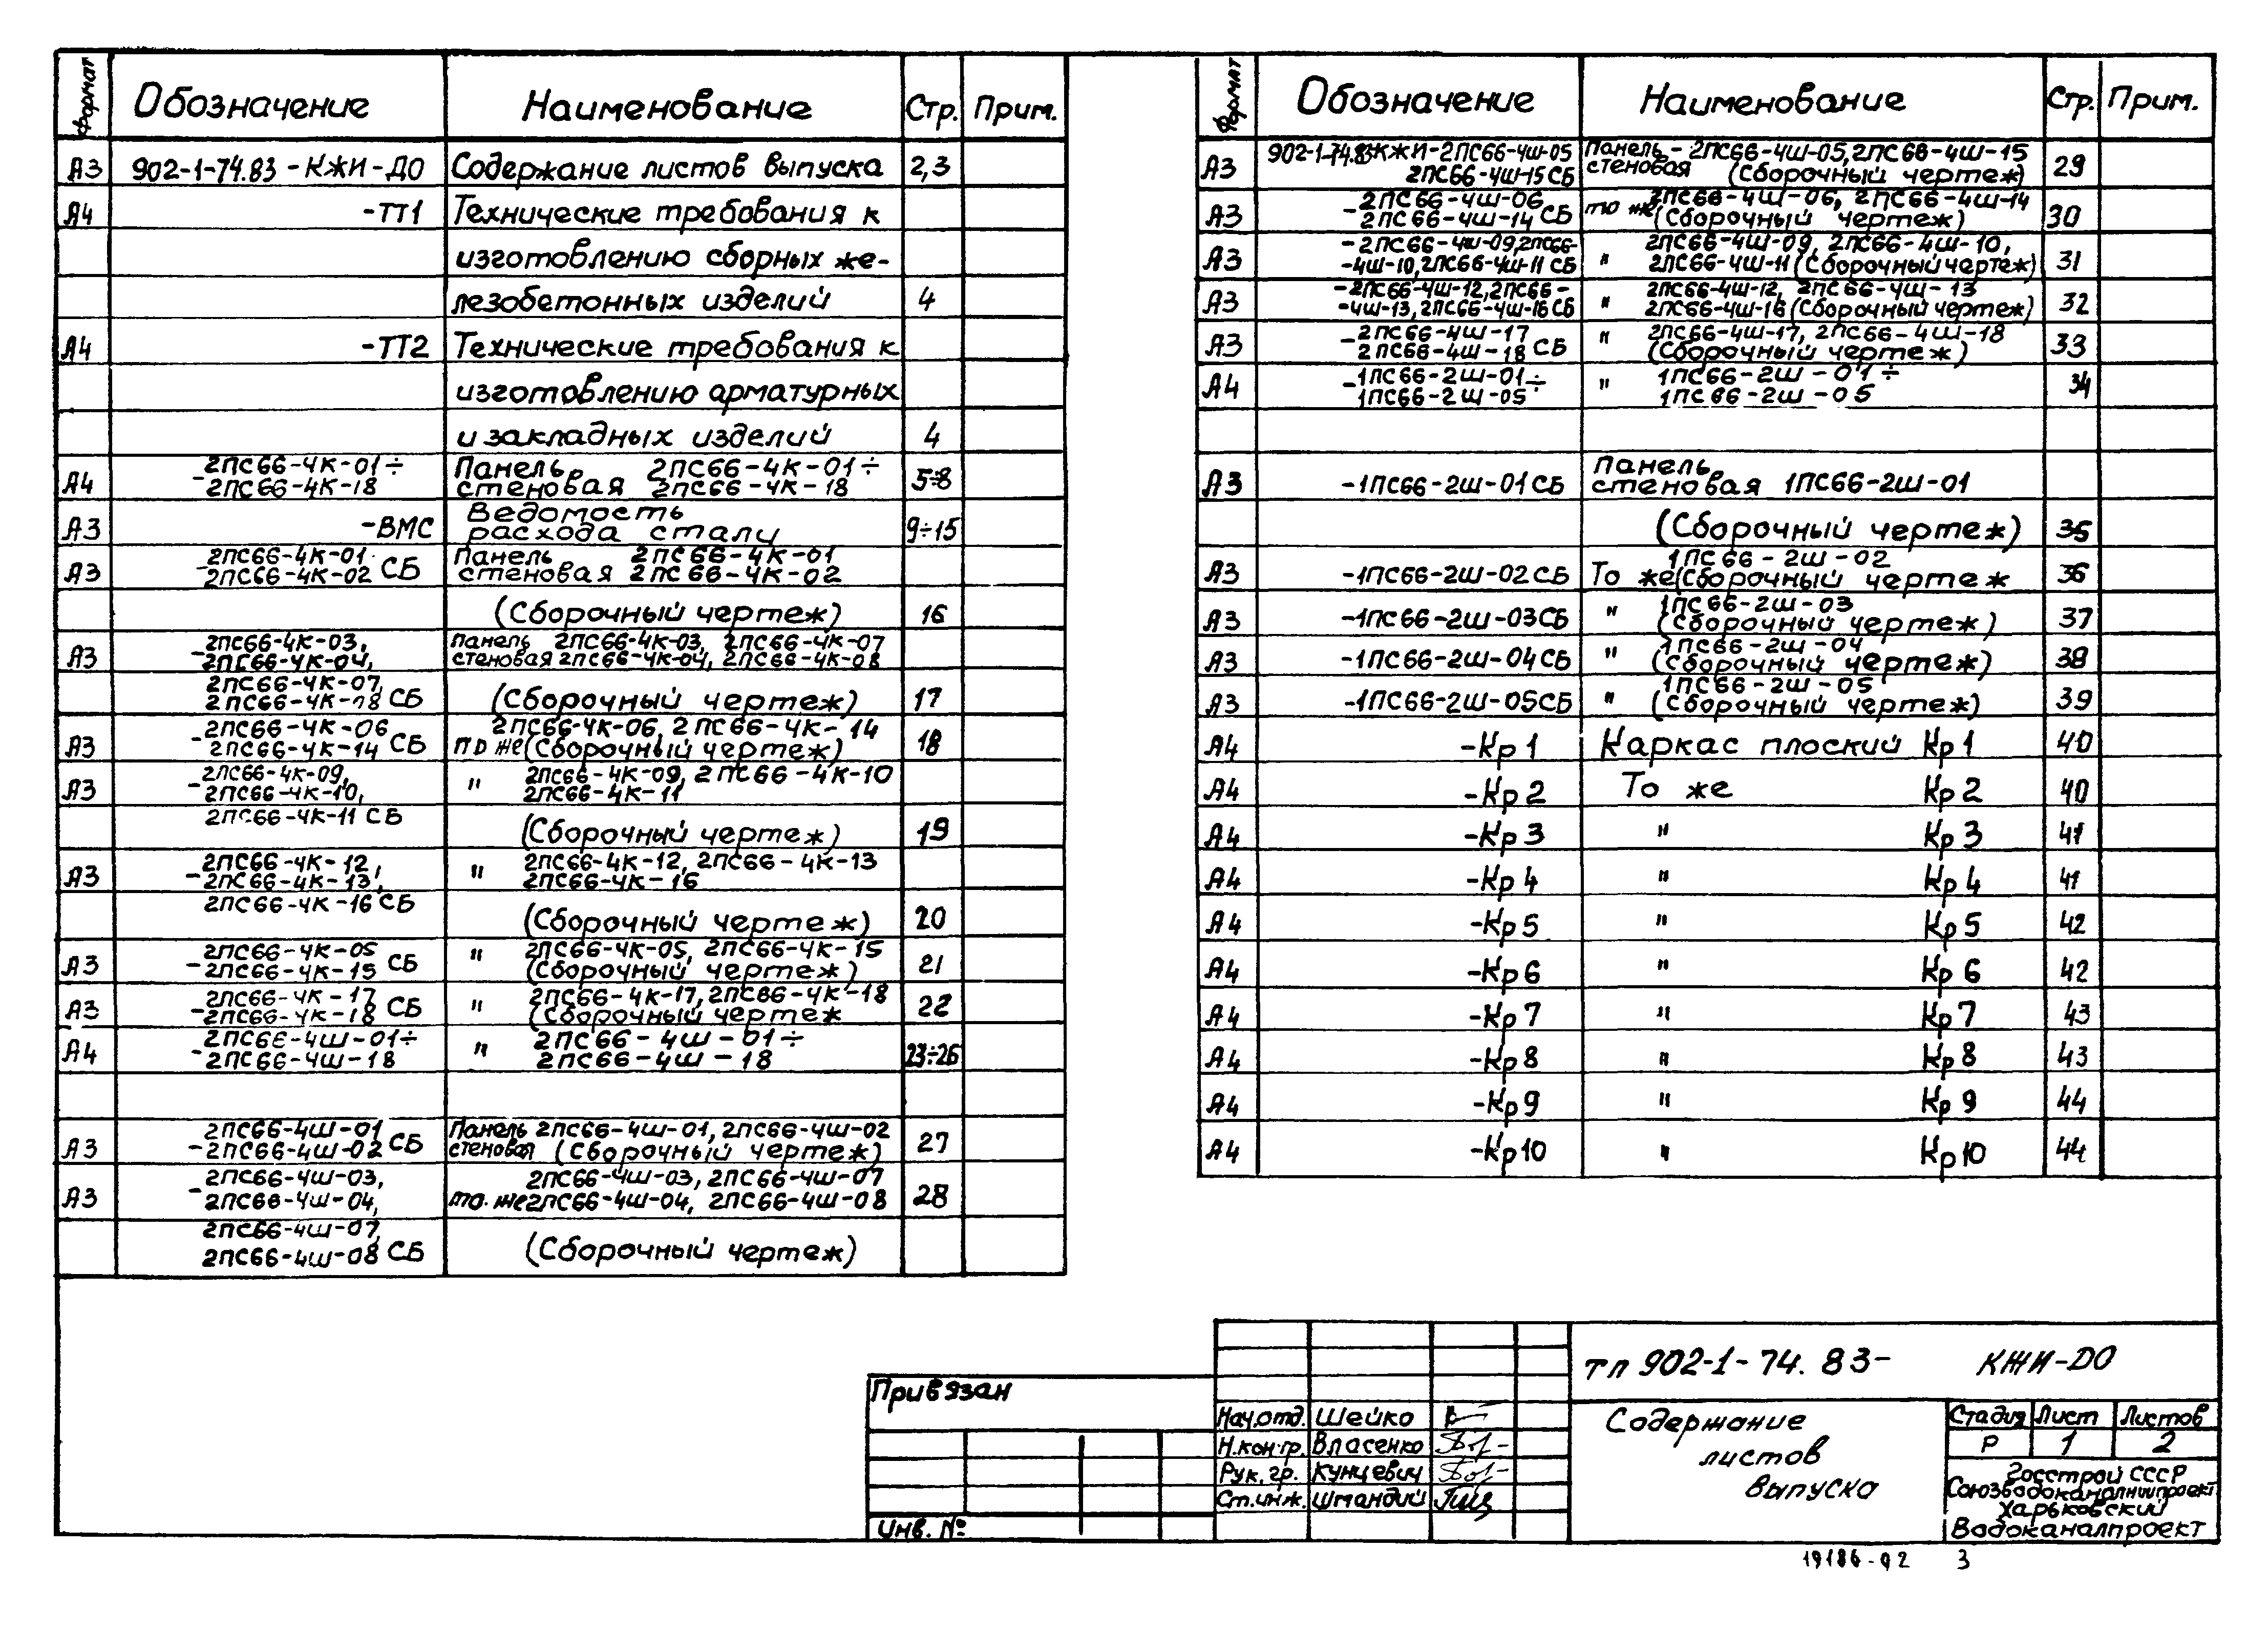 Формат Обозначение Наименование Стр. Прим.
А3 902-1-74.83-КЖИ-ДО Содержание листов выпуска 2,3
А4 -ТТ1 Технические требования к
изготовлению сборных же-
лезобетонных изделий 4
А4 -ТТ2 Технические требования к
изготовлению арматурных
и закладных изделий 4
2ПС66-4К-01÷ Панель 2ПС66-4К-01÷
А4 -2ПС66-4К-18 стеновая 2ПС66-4К-18 5÷8
Ведомость
А3 -ВМС расхода стали 9÷15
2ПС66-4К-01 Панель 2ПС66-4К-01
А3 -2ПС66-4К-02 СБ стеновая 2ПС66-4К-02
(Сборочный чертеж) 16
2ПС66-4К-03, Панель 2ПС66-4К-03, 2ПС66-4К-07
А3 -2ПС66-4К-04, стеновая 2ПС66-4К-04, 2ПС66-4К-08
2ПС66-4К-07,
2ПС66-4К-18 СБ (Сборочный чертеж) 17
2ПС66-4К-06 2ПС66-4К-06, 2ПС66-4К-14
А3 -2ПС66-4К-14 СБ то же (Сборочный чертеж) 18
2ПС66-4К-09, 2ПС66-4К-09, 2ПС66-4К-10
А3 -2ПС66-4К-10, " 2ПС66-4К-11
2ПС66-4К-11 СБ
(Сборочный чертеж) 19
2ПС66-4К-12, 2ПС66-4К-12, 2ПС66-4К-13
А3 -2ПС66-4К-13, " 2ПС66-4К-16
2ПС66-4К-16 СБ
(Сборочный чертеж) 20
2ПС66-4К-05 2ПС66-4К-05, 2ПС66-4К-15
А3 -2ПС66-4К-15 СБ " (Сборочный чертеж) 21
2ПС66-4К-17 2ПС66-4К-17, 2ПС66-4К-18
А3 -2ПС66-4К-18 СБ " (Сборочный чертеж 22
2ПС66-4Ш-01÷ 2ПС66-4Ш-01÷
А4 -2ПС66-4Ш-18 " 2ПС66-4Ш-18 23÷26
2ПС66-4Ш-01 Панель 2ПС66-4Ш-01, 2ПС66-4Ш-02
А3 -2ПС66-4Ш-02 СБ стеновая (Сборочный чертеж) 27
-2ПС66-4Ш-03, 2ПС66-4Ш-03, 2ПС66-4Ш-07
А3 2ПС66-4Ш-04, то же 2ПС66-4Ш-04, 2ПС66-4Ш-08 28
2ПС66-4Ш-07,
2ПС66-4Ш-08 СБ (Сборочный чертеж)
Формат Обозначение Наименование Стр. Прим.
902-1-74.83КЖИ-2ПС66-4Ш-05 Панель - 2ПС66-4Ш-05, 2ПС66-4Ш-15
А3 2ПС66-4Ш-15 СБ стеновая (Сборочный чертеж) 29
-2ПС66-4Ш-06 2ПС66-4Ш-06, 2ПС66-4Ш-14
А3 2ПС66-4Ш-14 СБ то же (Сборочный чертеж) 30
-2ПС66-4Ш-09, 2ПС66- 2ПС66-4Ш-09, 2ПС66-4Ш-10,
А3 -4Ш-10, 2ПС66-4Ш-11 СБ " 2ПС66-4Ш-11 (Сборочный чертеж) 31
-2ПС66-4Ш-12, 2ПС66- 2ПС66-4Ш-12, 2ПС66-4Ш-13
А3 -4Ш-13, 2ПС66-4Ш-16 СБ " 2ПС66-4Ш-16 (Сборочный чертеж) 32
-2ПС66-4Ш-17 2ПС66-4Ш-17, 2ПС66-4Ш-18
А3 2ПС66-4Ш-18 СБ " (Сборочный чертеж) 33
-1ПС66-2Ш-01÷ 1ПС66-2Ш-01÷
А4 1ПС66-2Ш-05 " 1ПС66-2Ш-05 34
Панель
А3 -1ПС66-2Ш-01 СБ стеновая 1ПС66-2Ш-01
(Сборочный чертеж) 35
1ПС66-2Ш-02
А3 -1ПС66-2Ш-02 СБ То же (Сборочный чертеж 36
1ПС66-2Ш-03
А3 -1ПС66-2Ш-03 СБ " (Сборочный чертеж) 37
1ПС66-2Ш-04
А3 -1ПС66-2Ш-04 СБ " (Сборочный чертеж) 38
1ПС66-2Ш-05
А3 -1ПС66-2Ш-05 СБ " (Сборочный чертеж) 39
А4 -Кр1 Каркас плоский Кр1 40
А4 -Кр2 То же Кр2 40
А4 -Кр3 " Кр3 41
А4 -Кр4 " Кр4 41
А4 -Кр5 " Кр5 42
А4 -Кр6 " Кр6 42
А4 -Кр7 " Кр7 43
А4 -Кр8 " Кр8 43
А4 -Кр9 " Кр9 44
А4 -Кр10 " Кр10 44
Привязан
Инв. №
Нач.отд. Шейко
Н.контр. Власенко
Рук. гр. Кунцевич
Ст.инж. Шмандий
тп 902-1-74.83- КЖИ-ДО
Содержание
листов
выпуска
Стадия Лист Листов
Р 1 2
Госстрой СССР
Союзводоканалниипроект
Харьковский
Водоканалпроект
19186-02 3